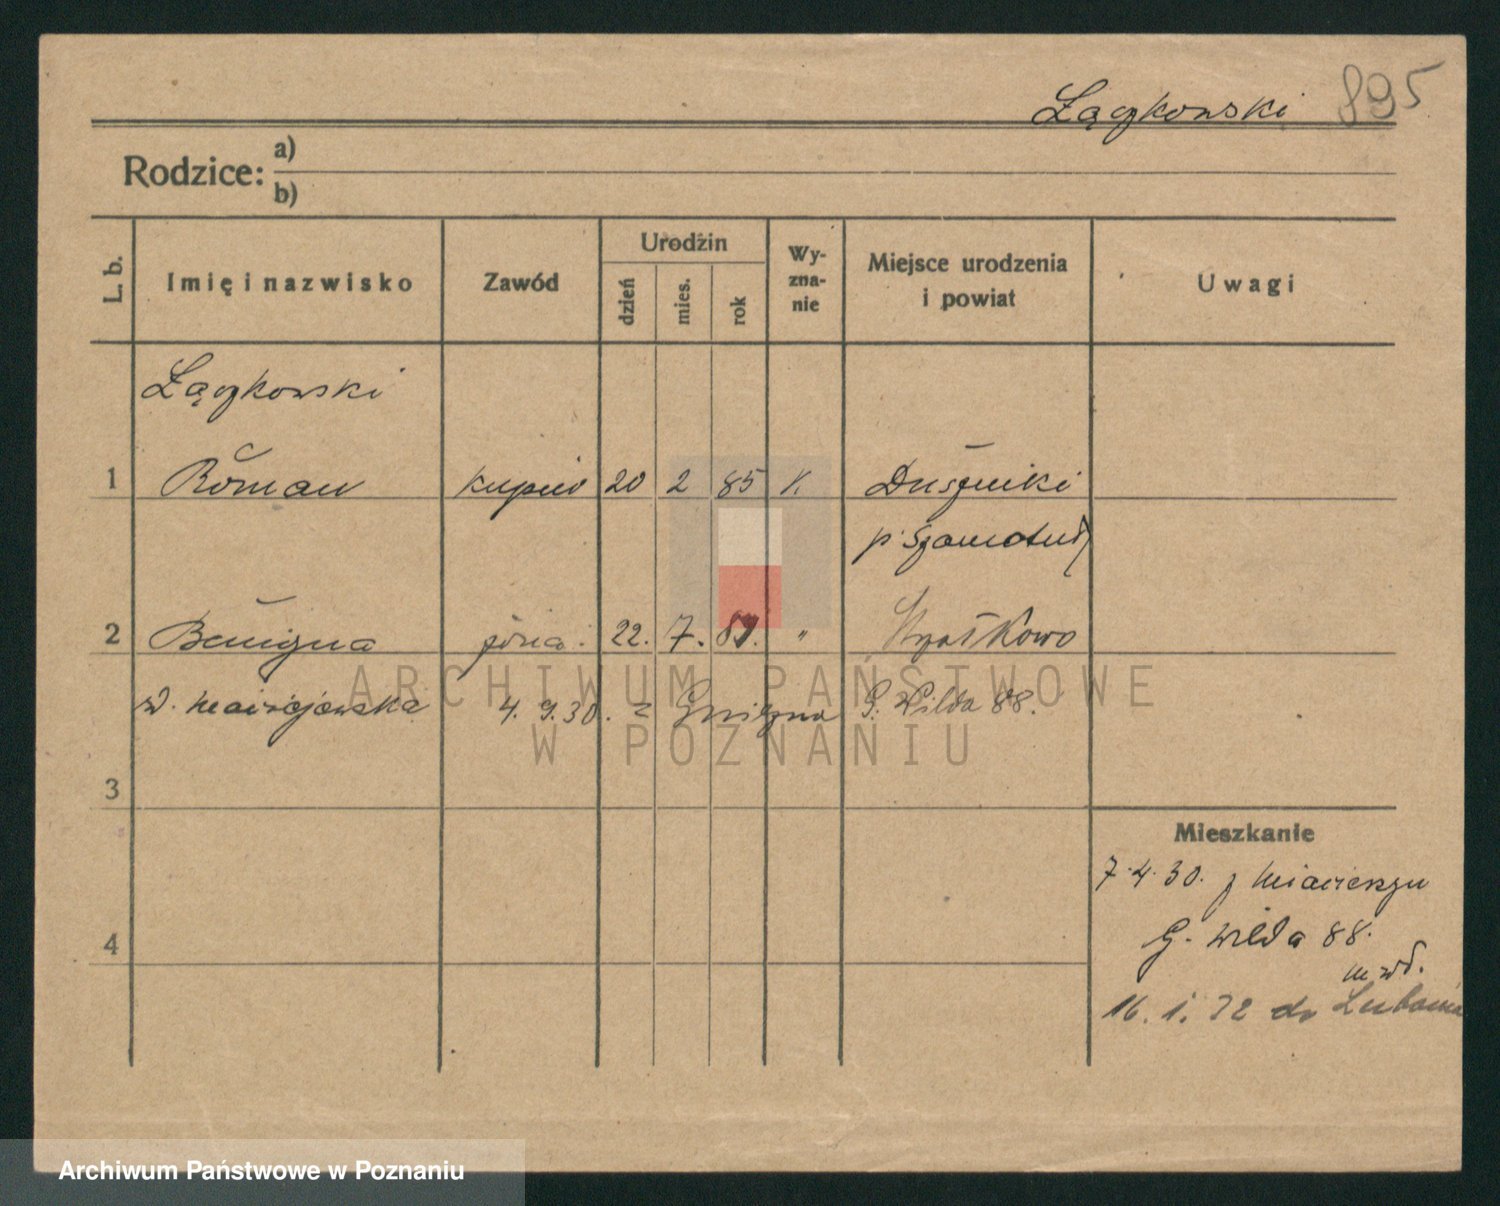 Łączkowski 895
Rodzice: a)
b)
L. b. Imię i nazwisko Zawód Urodzin dzień mies. rok Wy-zna-nie Miejsce urodzenia i powiat Uwagi
Łączkowski
1 Roman kupiec 20 2 85 K. Duszniki
p. Szamotuły
2 Benigna żona. 22. 7. 89. " Strzałkowo
4. 9. 30. z Gniezna G. Wilda 88.
ARCHIWUM PAŃSTWOWE
W POZNANIU
3
Mieszkanie
7.4.30. z
G. Wilda 88.
4
16. 1. 32 do Lubonia
Archiwum Państwowe w Poznaniu